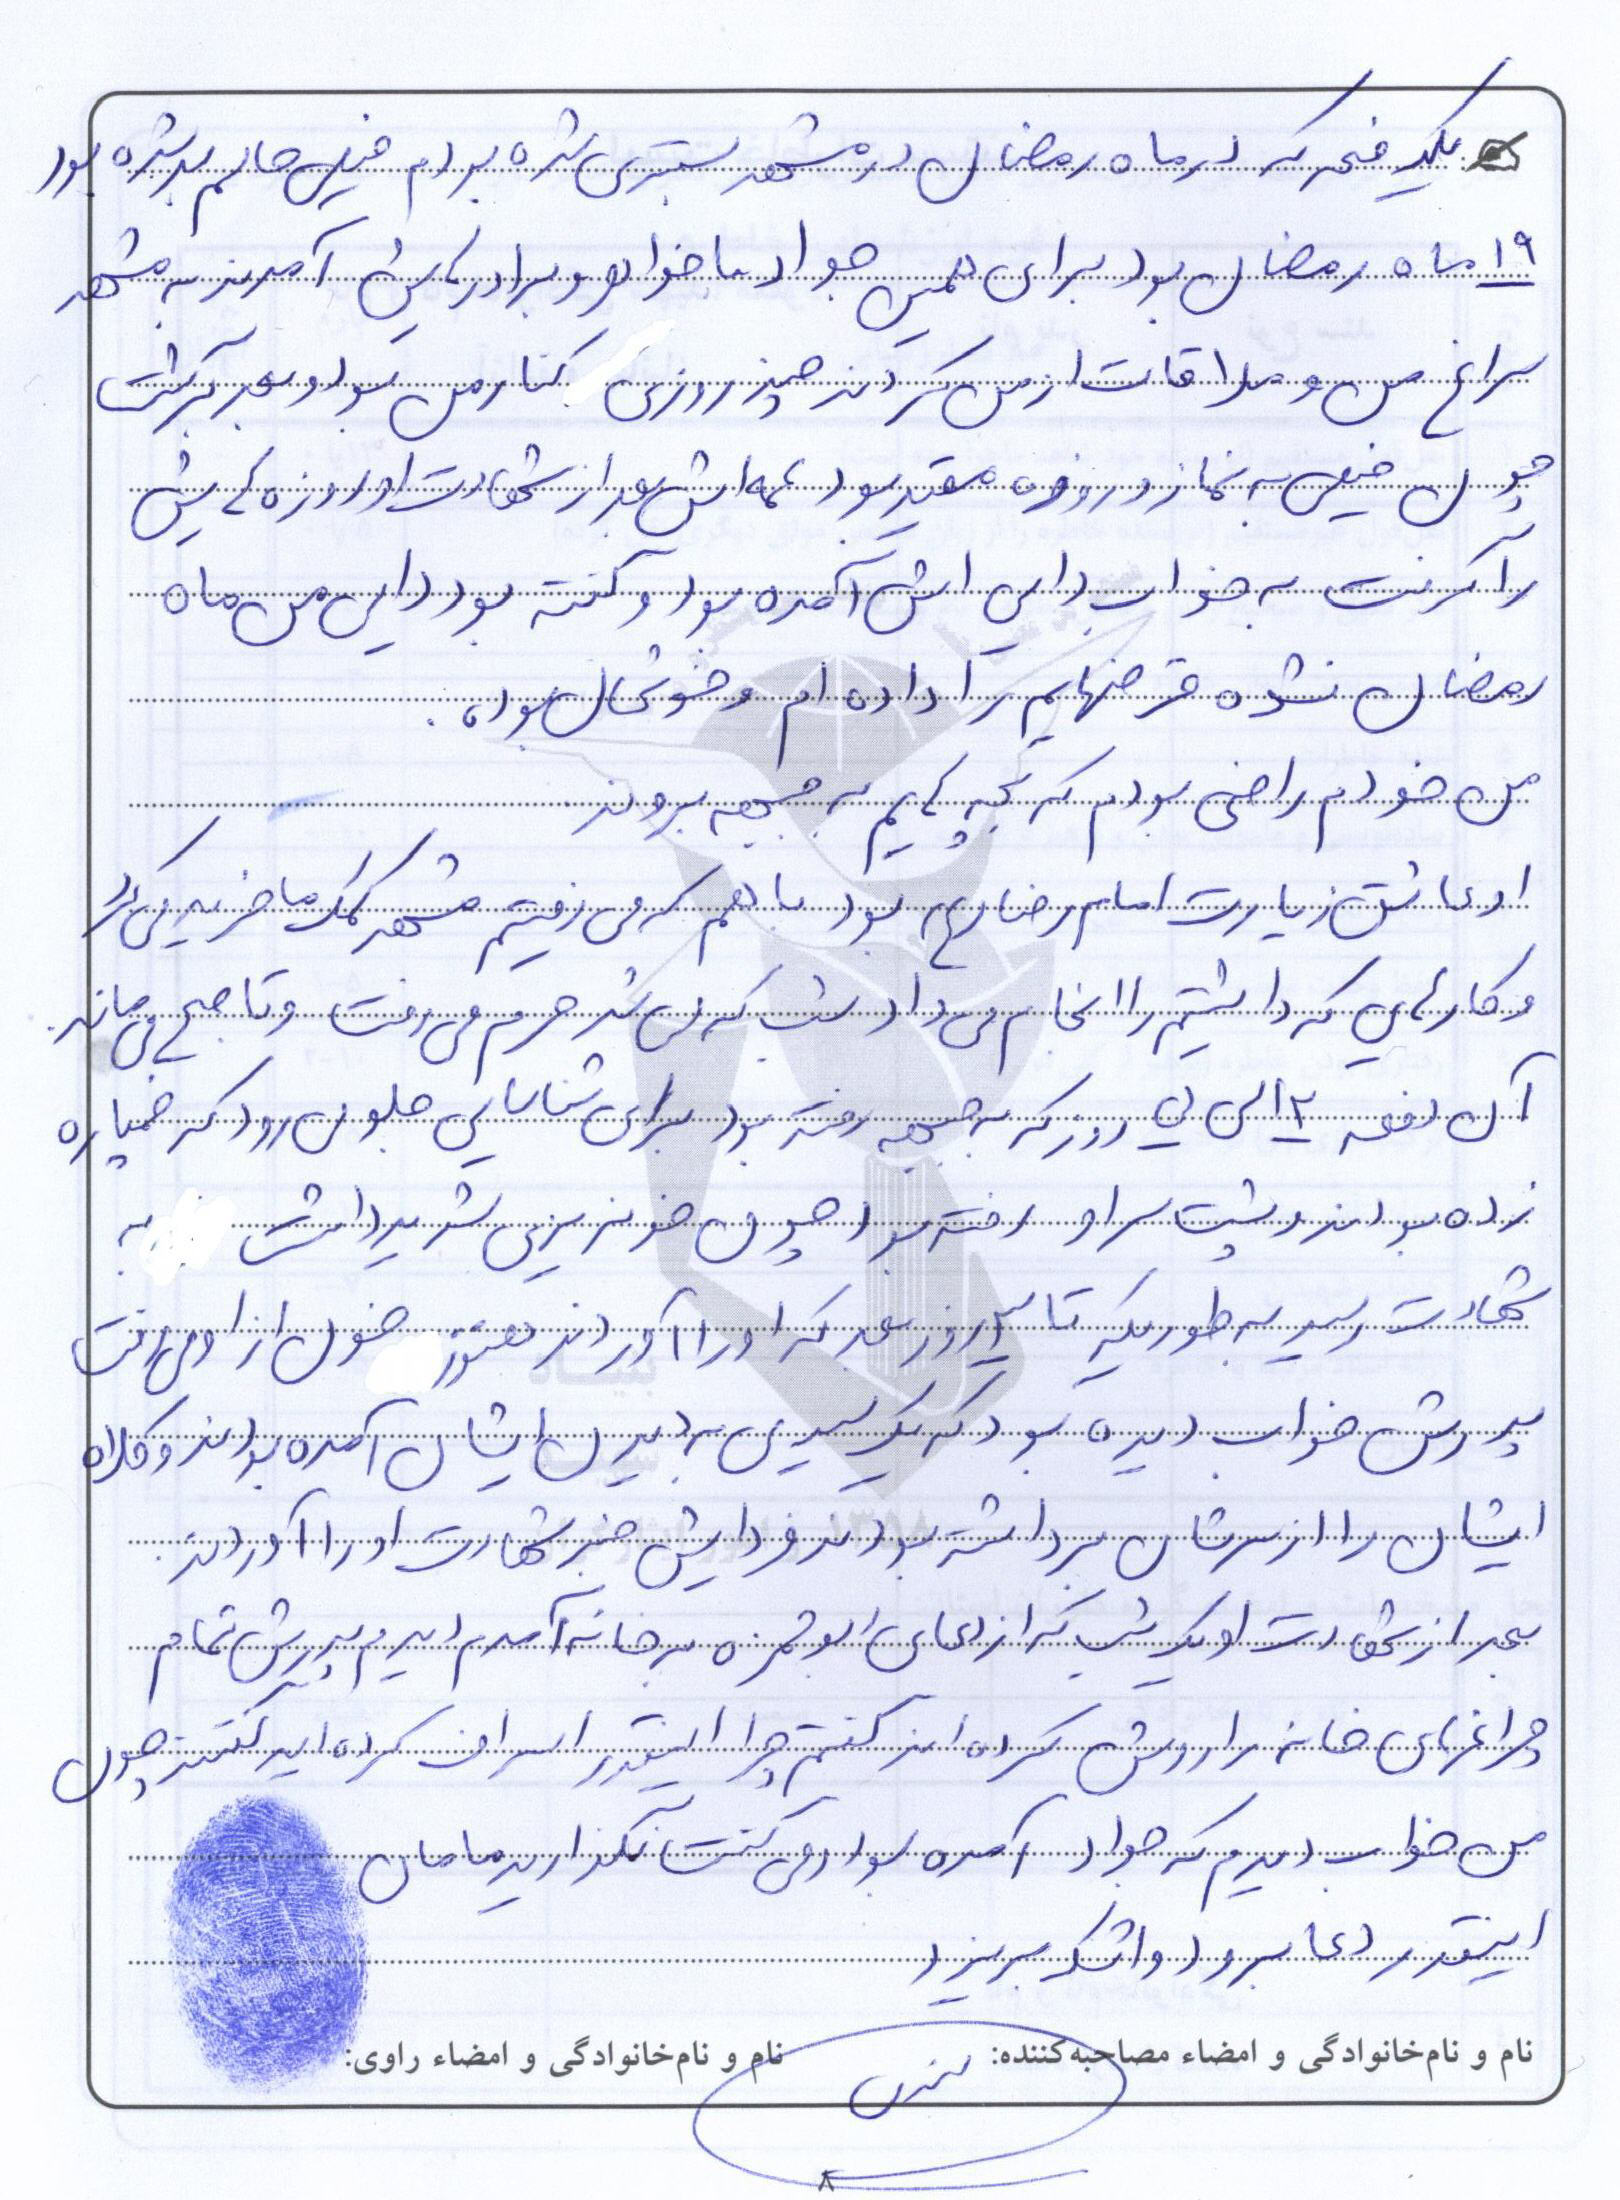 یکدفعه که در ماه رمضان در مشهد بستری شده بودم خیلی حالم بد شده بود
۱۹ ماه رمضان بود برای همین جواد با خواهر و برادرهایش آمدند به مشهد
سراغ من و ملاقات از من کردند چند روزی کنار من بود و بعد برگشت
چون خیلی به نماز و روزه مقید بود عمه اش بعد از شهادت او روزه هایش
را گرفت به خواب دایی اش آمده بود و گفته بود دایی من ماه
رمضان نشده قرضهایم را داده ام و خوشحال بوده.
من خودم راضی بودم که بچه هایم به جبهه بروند
او عاشق زیارت امام رضا (ع) بود با هم که می رفتیم مشهد کمک ما خرید می کرد
و کارهایی که داشتیم را انجام می داد شب که می شد حرم می رفت و تا صبح می ماند.
آن دفعه ۱۲ الی روز که به جبهه رفته بود برای شناسایی جلو می رود که خمپاره
زده بودند و پشت سر او رفته بود چون خونریزی شدید داشت به
شهادت رسید به طوریکه تا روز بعد که او را آوردند هنوز خون از او می رفت
پدرش خواب دیده بود که یک سیدی به دیدن ایشان آمده بودند و کلاه
ایشان را از سرشان برداشته بودند فردایش خبر شهادت او را آوردند.
بعد از شهادت او یک شب که از دعای ابوحمزه به خانه آمدم دیدم پدرش تمام
چراغهای خانه را روشن کرده اند گفتم چرا اینقدر اسراف کرده اید گفتند چون
من خواب دیدم که جواد آمده بود و می گفت نگذارید مامان
اینقدر دعا برود و اشک بریزد
نام و نام‌خانوادگی و امضاء مصاحبه‌کننده: نام و نام‌خانوادگی و امضاء راوی:
۸